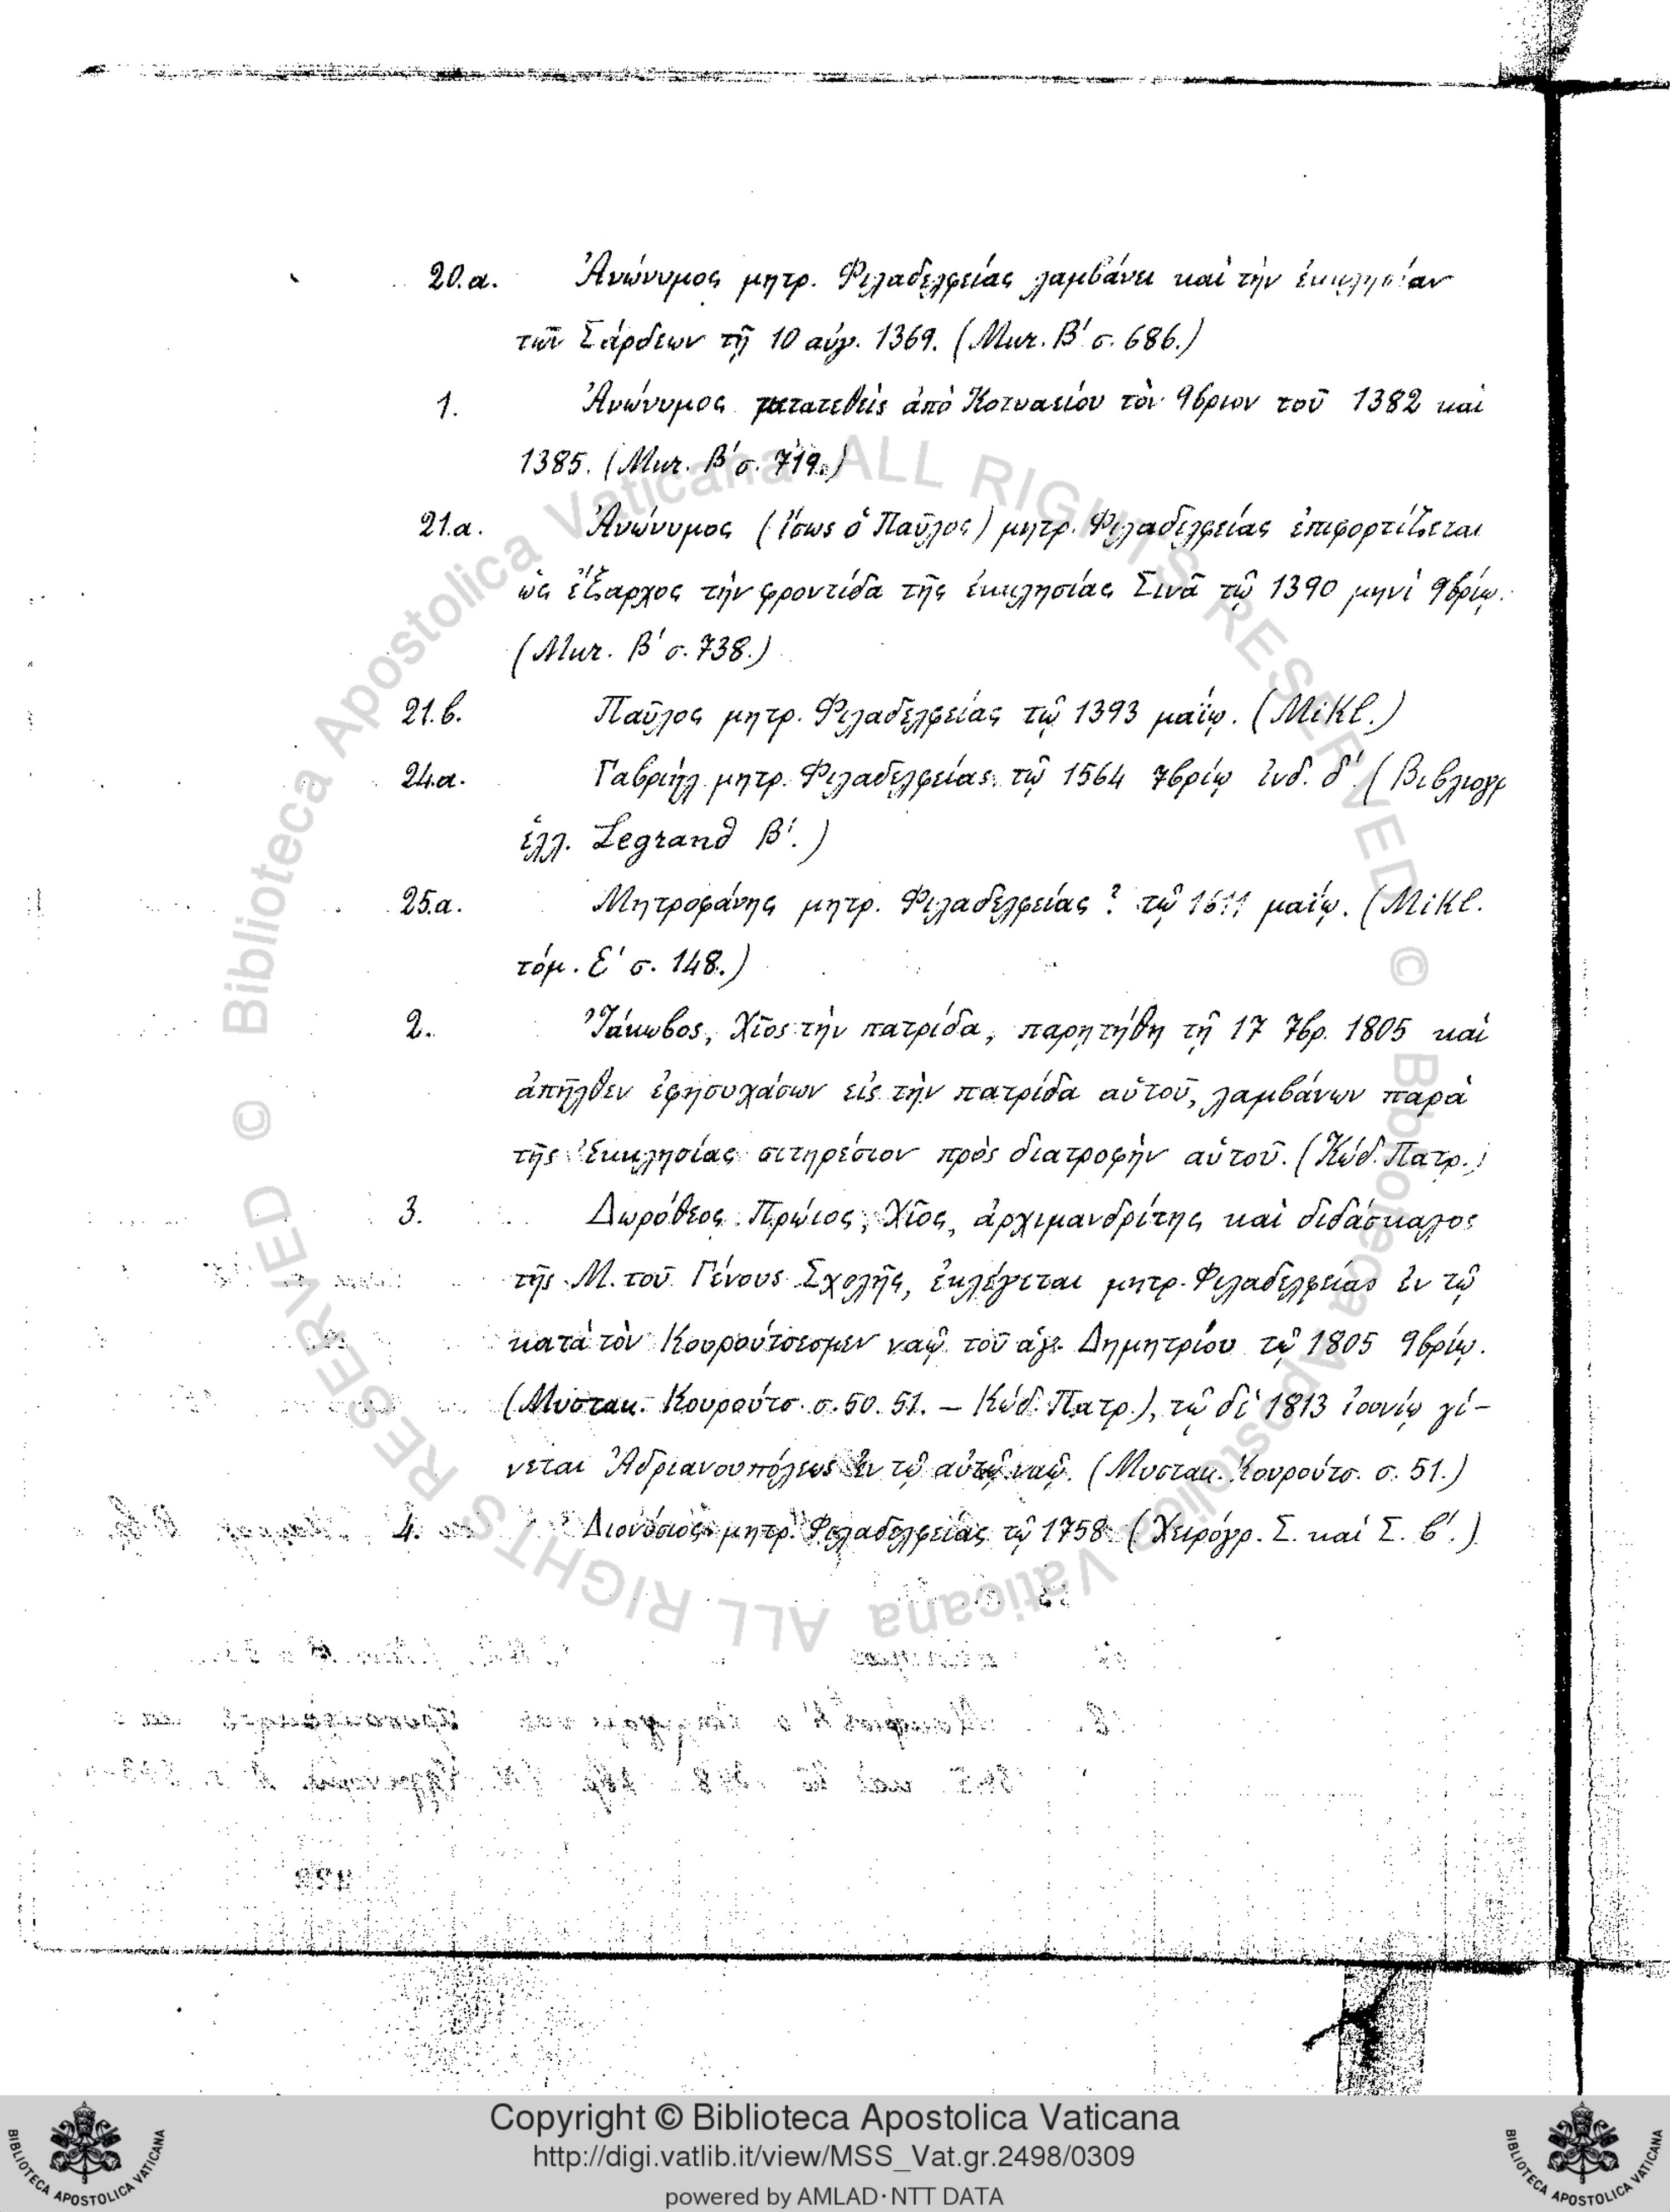 20.α. Ἀνώνυμος μητρ. Φιλαδελφείας λαμβάνει καὶ τὴν ἐκκλησίαν
τῶν Σάρδεων τῇ 10 αὐγ. 1369. (Μικ. Β΄ σ. 686.)
1. Ἀνώνυμος μετατεθεὶς ἀπὸ Κοτυαείου τὸν 9βριον τοῦ 1382 καὶ
1385. (Μικ. Β΄ σ. 719.)
21.α. Ἀνώνυμος (ἴσως ὁ Παῦλος) μητρ. Φιλαδελφείας ἐπιφορτίζεται
ὡς ἔξαρχος τὴν φροντίδα τῆς ἐκκλησίας Σινᾶ τῷ 1390 μηνὶ 9βρίῳ.
(Μικ. Β΄ σ. 738.)
21.β. Παῦλος μητρ. Φιλαδελφείας τῷ 1393 μαΐῳ. (Mikl.)
24.α. Γαβριὴλ μητρ. Φιλαδελφείας τῷ 1564 7βρίῳ ἰνδ. δ΄. (Βιβλιογρ
ἑλλ. Legrand Β΄.)
25.α. Μητροφάνης μητρ. Φιλαδελφείας ? τῷ 1611 μαΐῳ. (Mikl.
τόμ. Ε΄ σ. 148.)
2. Ἰάκωβος, Χῖος τὴν πατρίδα, παρῃτήθη τῇ 17 7βρ. 1805 καὶ
ἀπῆλθεν ἐφησυχάσων εἰς τὴν πατρίδα αὑτοῦ, λαμβάνων παρὰ
τῆς Ἐκκλησίας σιτηρέσιον πρὸς διατροφὴν αὑτοῦ. (Κώδ. Πατρ.)
3. Δωρόθεος Πρώιος, Χῖος, ἀρχιμανδρίτης καὶ διδάσκαλος
τῆς Μ. τοῦ Γένους Σχολῆς, ἐκλέγεται μητρ. Φιλαδελφείας ἐν τῷ
κατὰ τὸν Κουρούτσεσμεν ναῷ τοῦ ἁγ. Δημητρίου τῷ 1805 9βρίῳ.
(Μυστακ. Κουρούτσ. σ. 50. 51. – Κώδ. Πατρ.), τῷ δὲ 1813 ἰουνίῳ γί-
νεται Ἀδριανουπόλεως ἐν τῷ αὐτῷ ναῷ. (Μυστακ. Κουρούτσ. σ. 51.)
4. Διονύσιος μητρ. Φιλαδελφείας τῷ 1758. (Χειρόγρ. Σ. καὶ Σ. β΄.)
© Biblioteca Apostolica Vaticana ALL RIGHTS RESERVED
© Biblioteca Apostolica Vaticana ALL RIGHTS RESERVED
Copyright © Biblioteca Apostolica Vaticana
http://digi.vatlib.it/view/MSS_Vat.gr.2498/0309
powered by AMLAD·NTT DATA
BIBLIOTECA APOSTOLICA VATICANA
BIBLIOTECA APOSTOLICA VATICANA